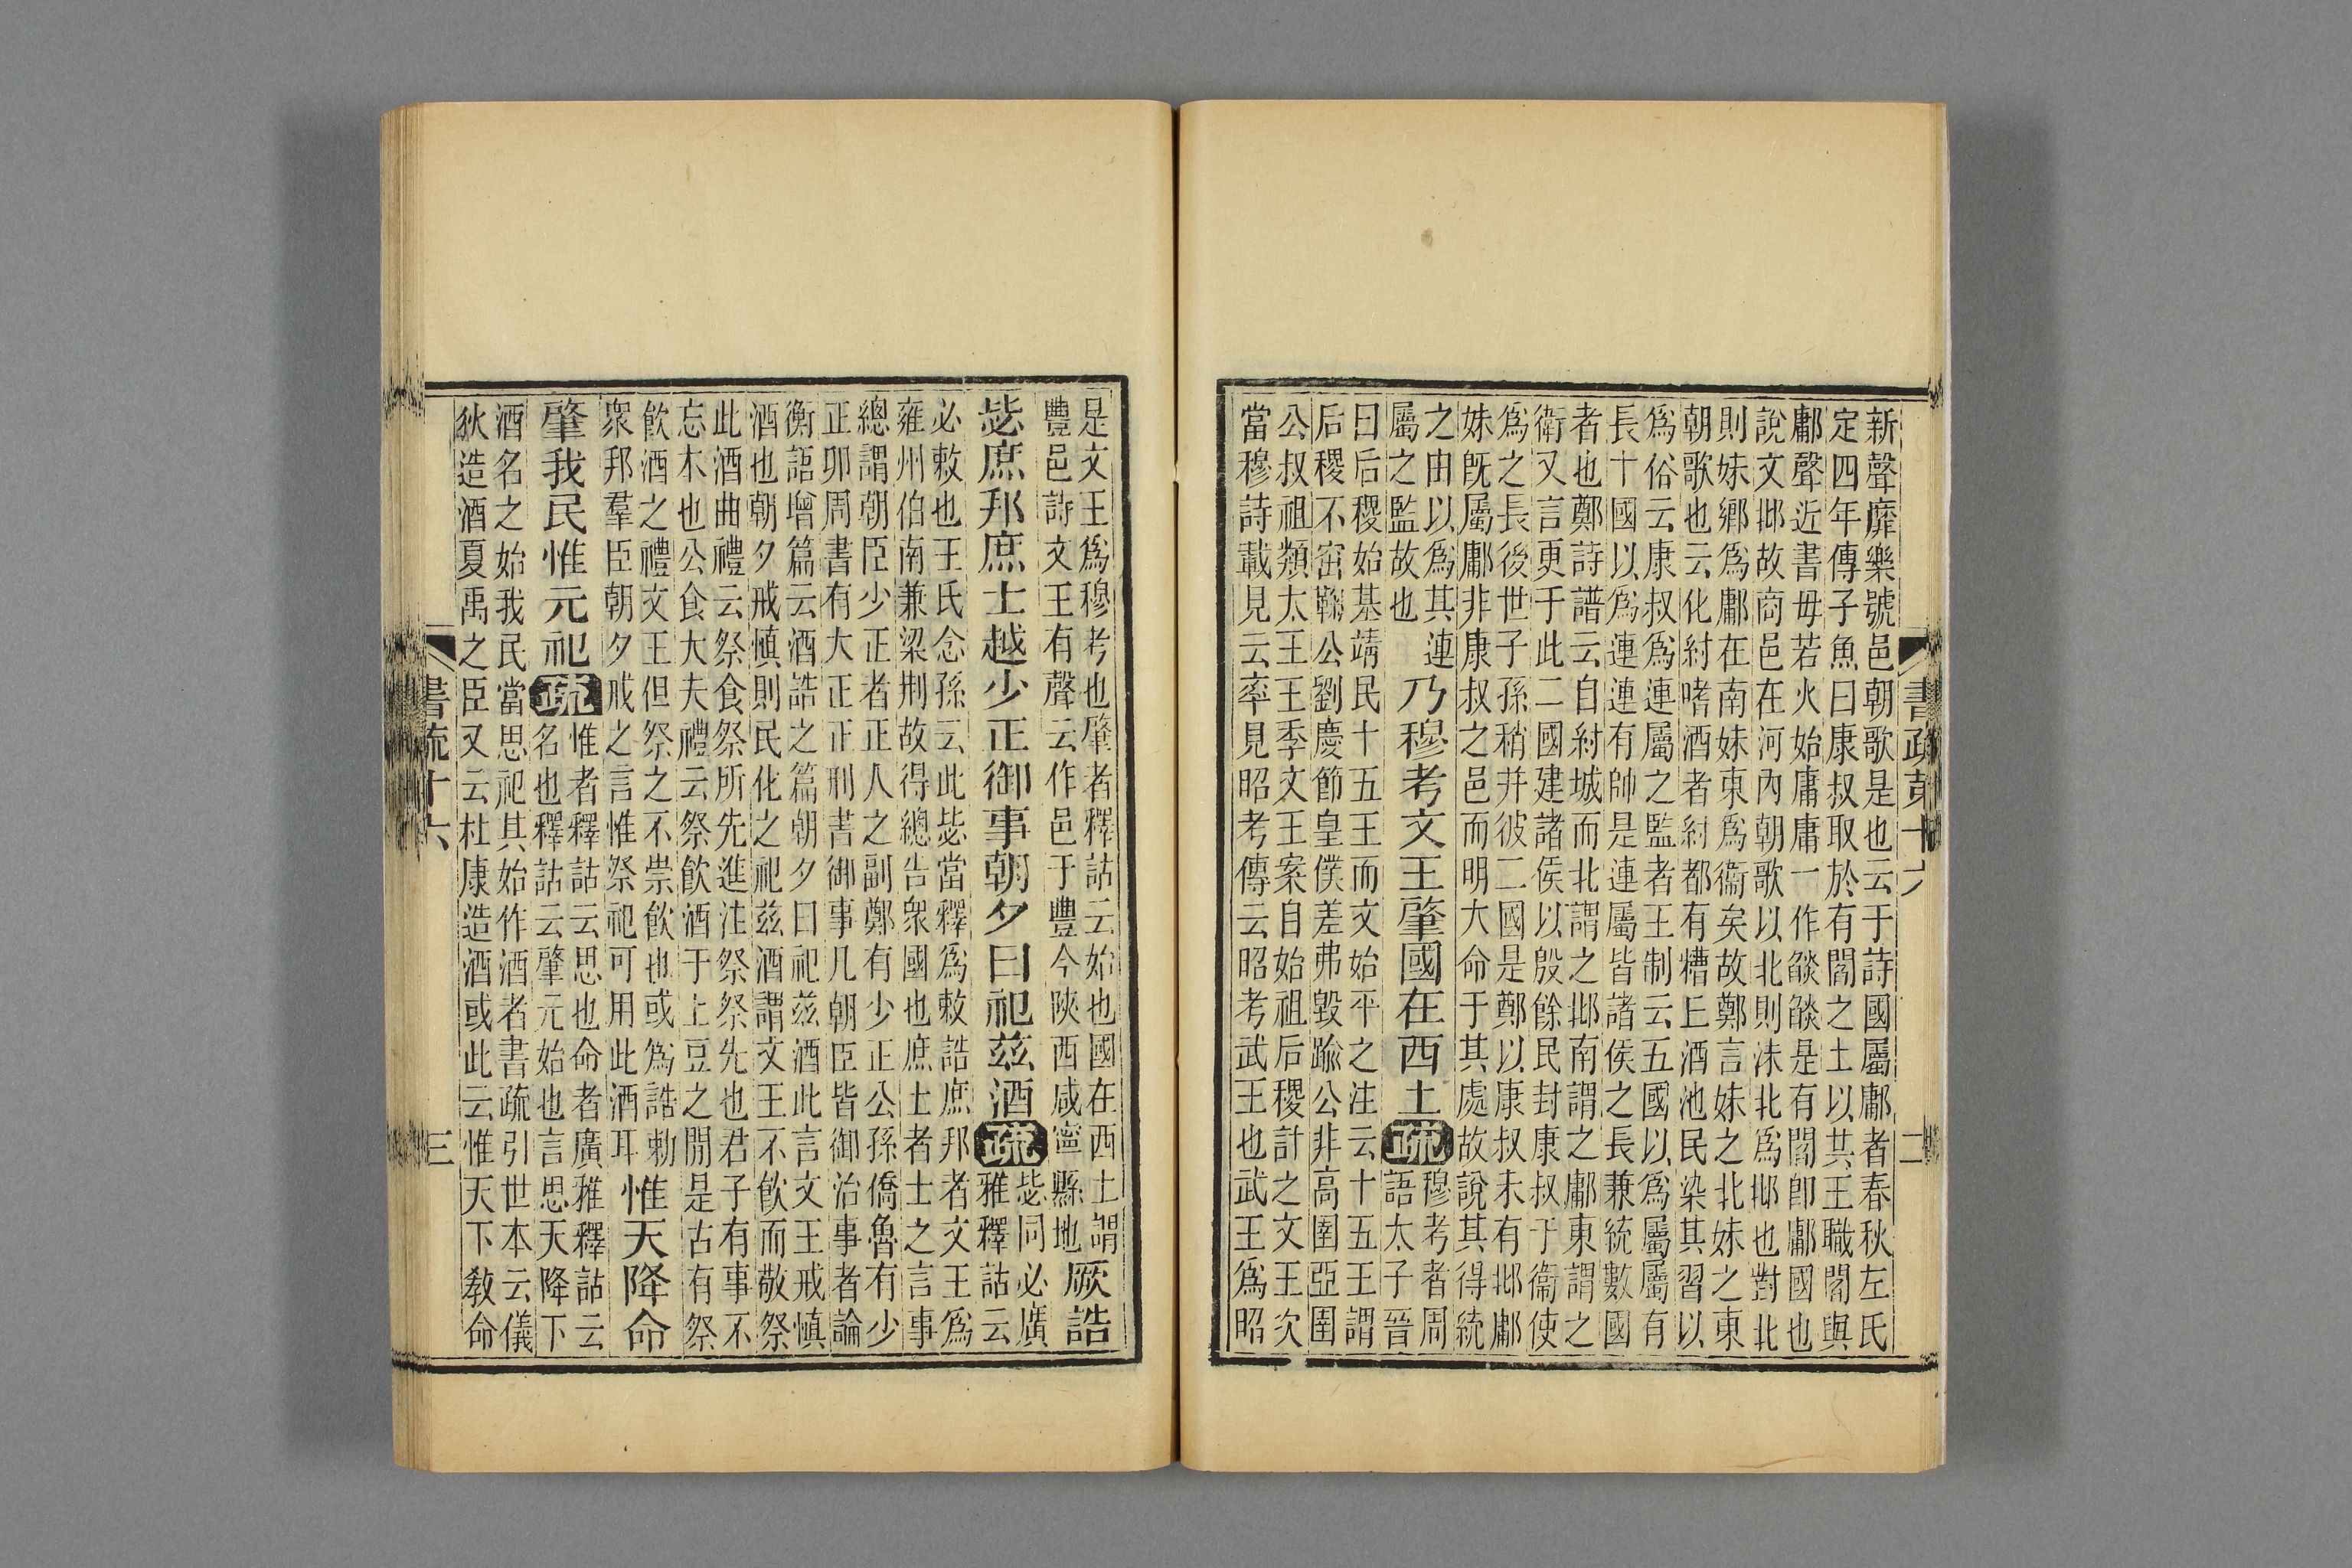 新聲靡樂號邑朝歌是也云于詩國屬鄘者春秋左氏
定四年傳子魚曰康叔取於有閻之土以共王職閻與
鄘聲近書毋若火始庸庸一作燄燄是有閻卽鄘國也
說文邶故商邑在河內朝歌以北則沬北爲邶也對北
則妹鄉爲鄘在南妹東爲衞矣故鄭言妹之北妹之東
朝歌也云化紂嗜酒者紂都有糟丘酒池民染其習以
爲俗云康叔爲連屬之監者王制云五國以爲屬屬有
長十國以爲連連有帥是連屬皆諸侯之長兼統數國
者也鄭詩譜云自紂城而北謂之邶南謂之鄘東謂之
衞又言更于此二國建諸侯以殷餘民封康叔于衞使
爲之長後世子孫稍并彼二國是鄭以康叔未有邶鄘
妹旣屬鄘非康叔之邑而明大命于其處故說其得統
之由以爲其連
屬之監故也
乃穆考文王肇國在西土疏
穆考者周
語太子晉
曰后稷始基靖民十五王而文始平之注云十五王謂
后稷不窋鞠公劉慶節皇僕差弗毀踰公非高圉亞圉
公叔祖類太王王季文王案自始祖后稷計之文王次
當穆詩載見云率見昭考傳云昭考武王也武王爲昭
書疏第十六
二
是文王爲穆考也肇者釋詁云始也國在西土謂
豐邑詩文王有聲云作邑于豐今陝西咸寧縣地
厥誥
毖庶邦庶士越少正御事朝夕曰祀茲酒疏
毖同必廣
雅釋詁云
必敕也王氏念孫云此毖當釋爲敕誥庶邦者文王爲
雍州伯南兼梁荆故得總告衆國也庶士者士之言事
總謂朝臣少正者正人之副鄭有少正公孫僑魯有少
正卯周書有大正正刑書御事凡朝臣皆御治事者論
衡語增篇云酒誥之篇朝夕曰祀茲酒此言文王戒慎
酒也朝夕戒慎則民化之祀茲酒謂文王不飲而敬祭
此酒曲禮云祭食祭所先進注祭祭先也君子有事不
忘本也公食大夫禮云祭飲酒于上豆之閒是古有祭
飲酒之禮文王但祭之不崇飲也或爲誥勅
衆邦羣臣朝夕戒之言惟祭祀可用此酒耳
惟天降命
肇我民惟元祀疏
惟者釋詁云思也命者廣雅釋詁云
名也釋詁云肇元始也言思天降下
酒名之始我民當思祀其始作酒者書疏引世本云儀
狄造酒夏禹之臣又云杜康造酒或此云惟天下敎命
書疏十六
三